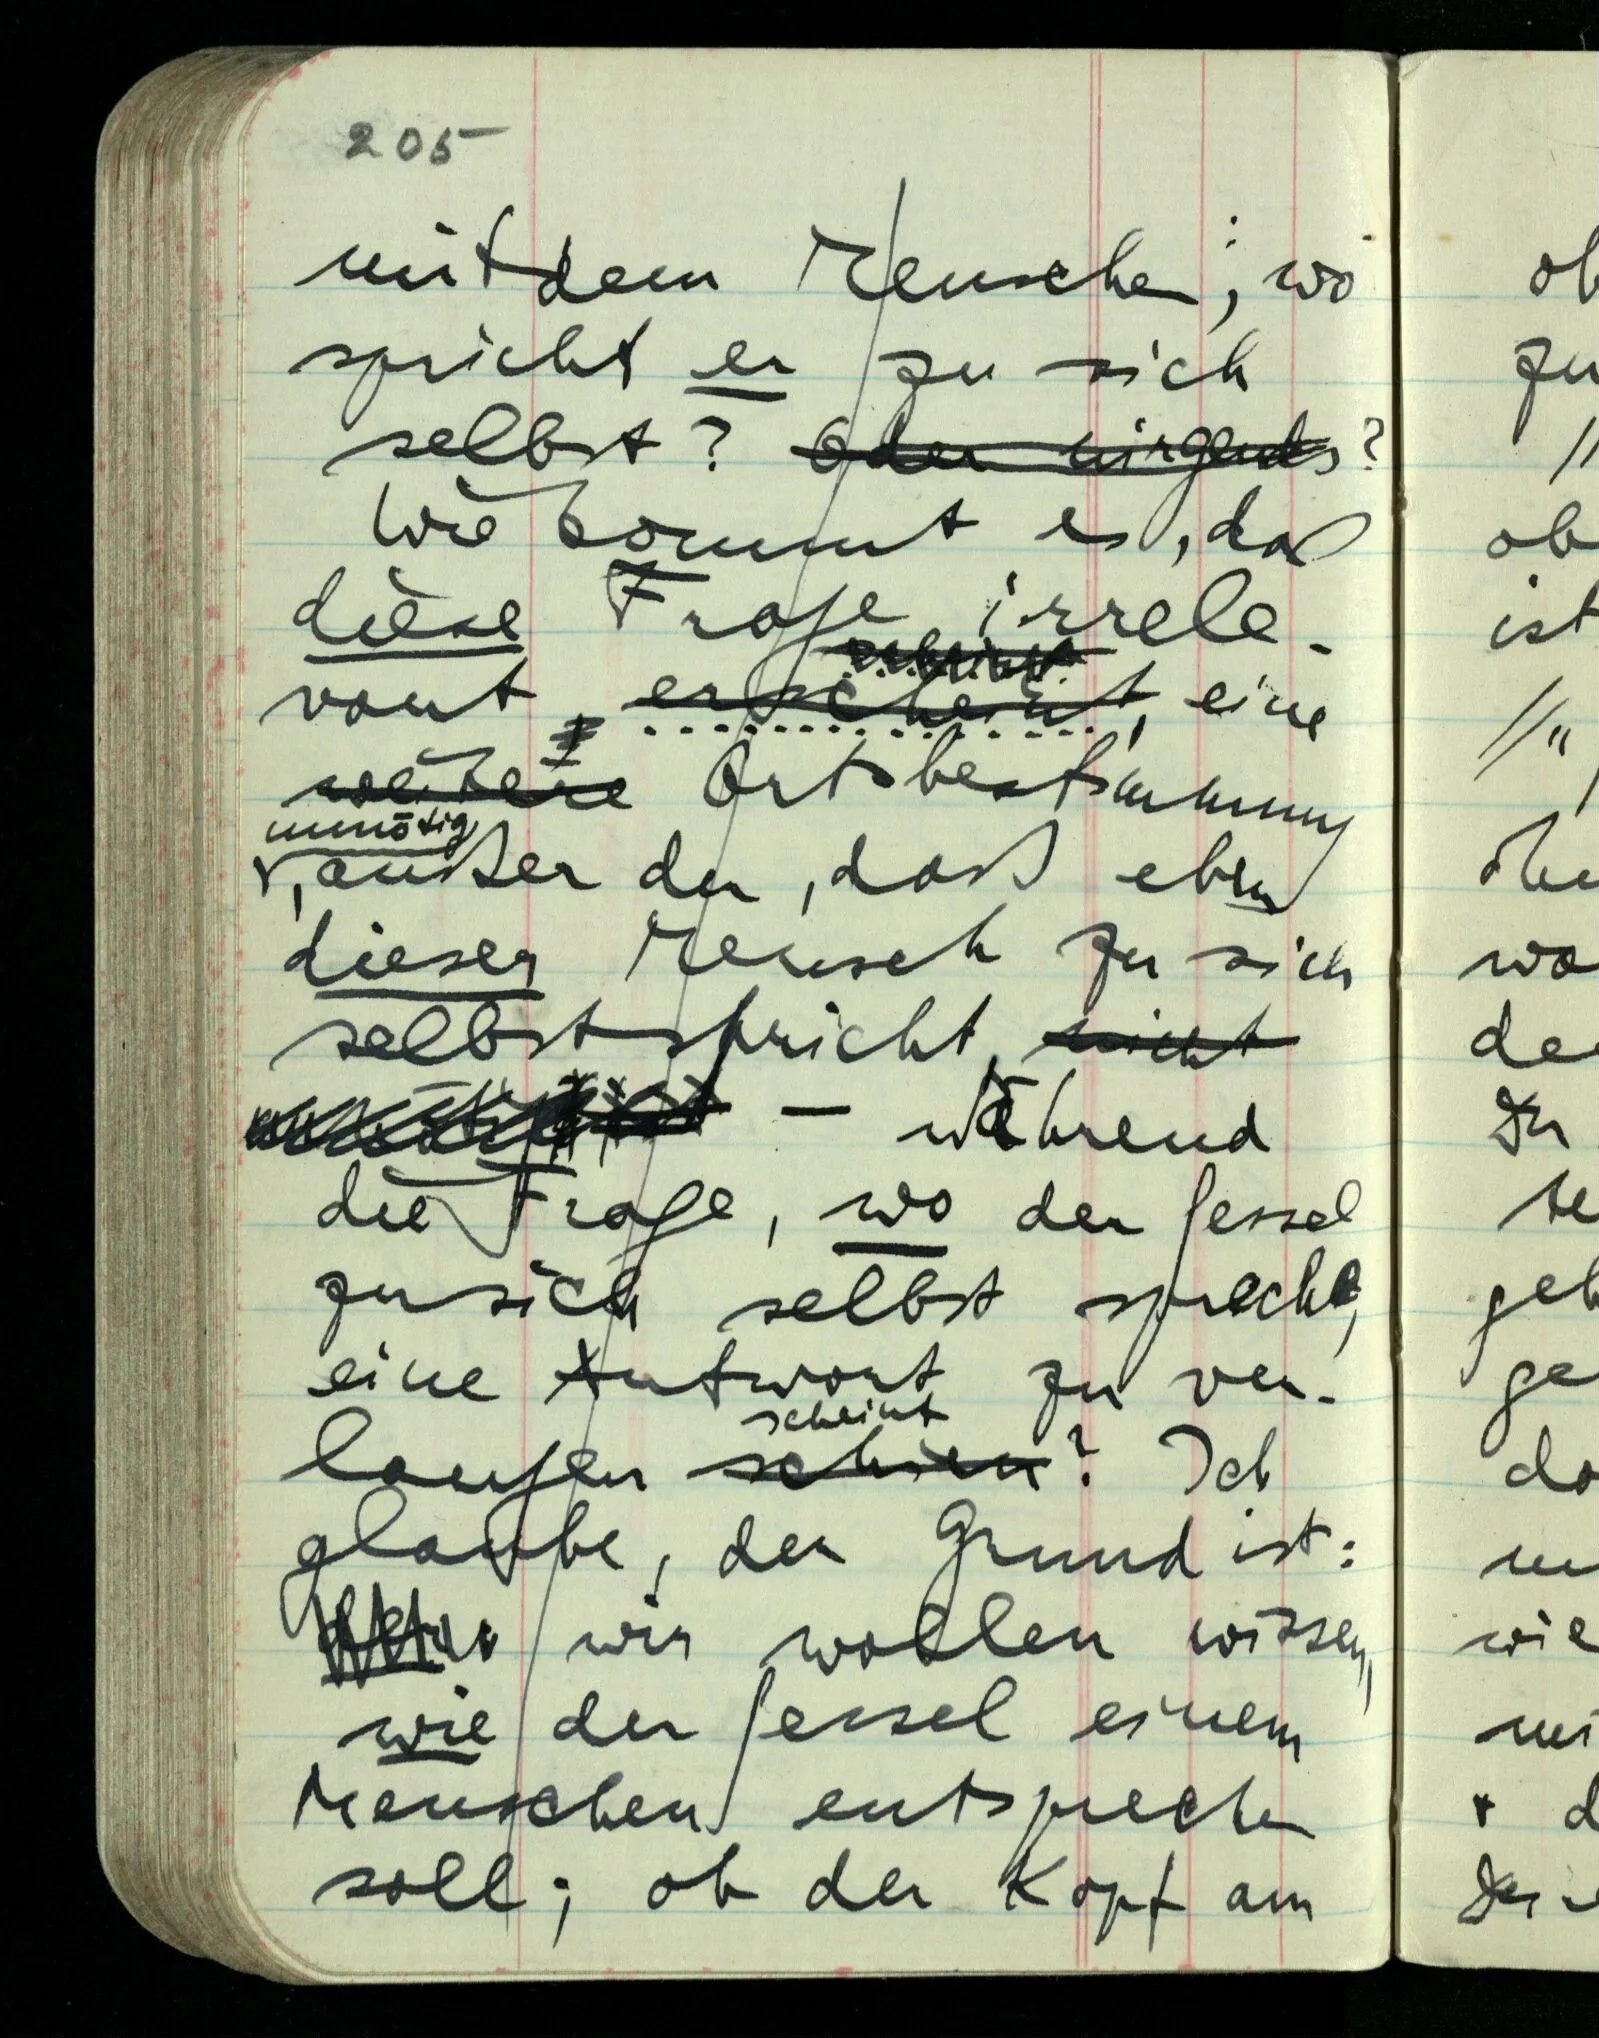 205
mit dem Menschen; wo
spricht er zu sich
selbst? Oder nirgends?
Wie kommt es, daß
diese Frage irrele-
scheint
vant erscheint, eine
weitere Ortsbestimmung
unnötig
, außer der, daß eben
dieser Mensch zu sich
selbst spricht, nicht
– während
die Frage, wo der Sessel
zu sich selbst spreche,
eine Antwort zu ver-
scheint
langen schien? Ich
glaube, der Grund ist:
wir wollen wissen,
wie der Sessel einem
Menschen entsprechen
soll; ob der Kopf am
ob
zu
ob
ist
de
Der
ge
wie